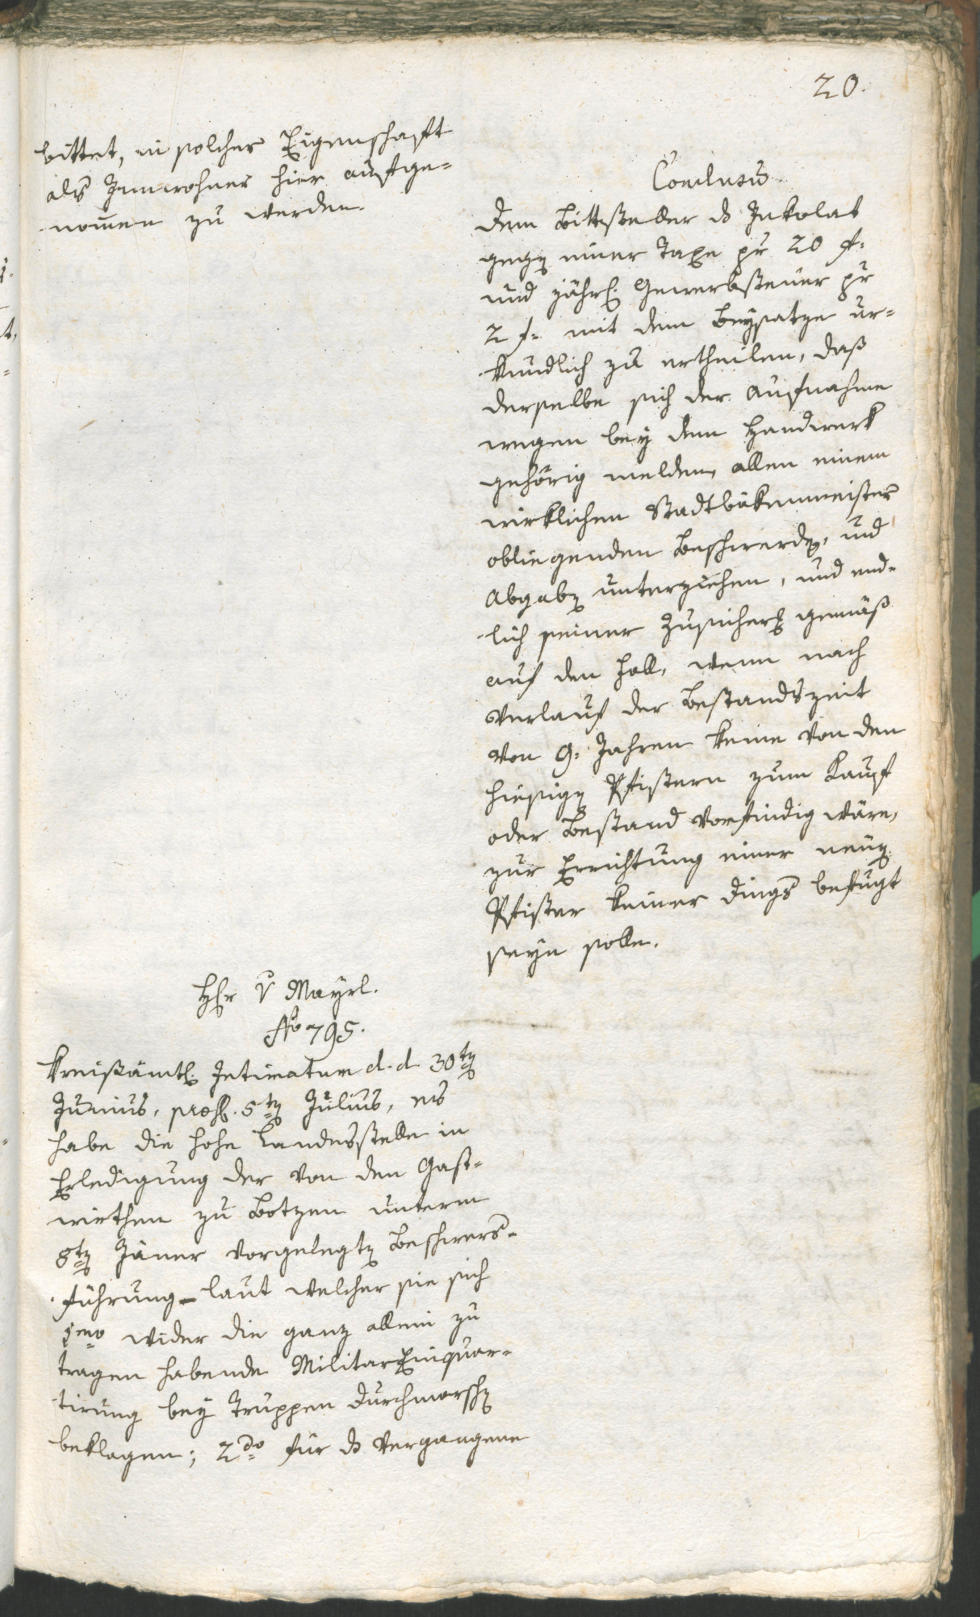 20.
bittet, in solcher Eigenschaft
als Innwohner hier aufge-
nom̅en zu werden.
Conclusū.
dem Bittsteller ds Inkolat
gegen einer Taxe pr 20 f.
und jährl. Gewerbsteuer pr
2 f. mit dem Beysatze ur-
kundlich zu ertheilen, daß
derselbe sich der Aufnahme
wegen bey dem Handwerk
gehörig melden, allen einem
wirklichen Stadtbäkenmeister
obliegenden Beschwerden, und
Abgaben unterziehen, und end-
lich seiner Zusicherung gemäß
auf den Fall, wenn nach
Verlauf der Bestandszeit
von 9. Jahren keine von den
hiesigen Pfistern zum Kauf
oder Bestand vorfindig wäre,
zur Errichtung einer neuen
Pfister keiner dings befugt
seyn solle.
Hr v Mayrl.
No 795.
Kreisämtl. Intimatum d. d. 30ten
Junius, pres. 5ten Julius, es
habe die hohe Landesstelle in
Erledigung der von den Gast-
wirthen zu Botzen unterm
8ten Jäner vorgelegten Beschwers-
führung - laut welcher sie sich
1mo wider die ganz allein zu
tragen habende Militar Einquar-
tirung bey Truppen Durchmarschen
beklagen; 2do für ds vergangene